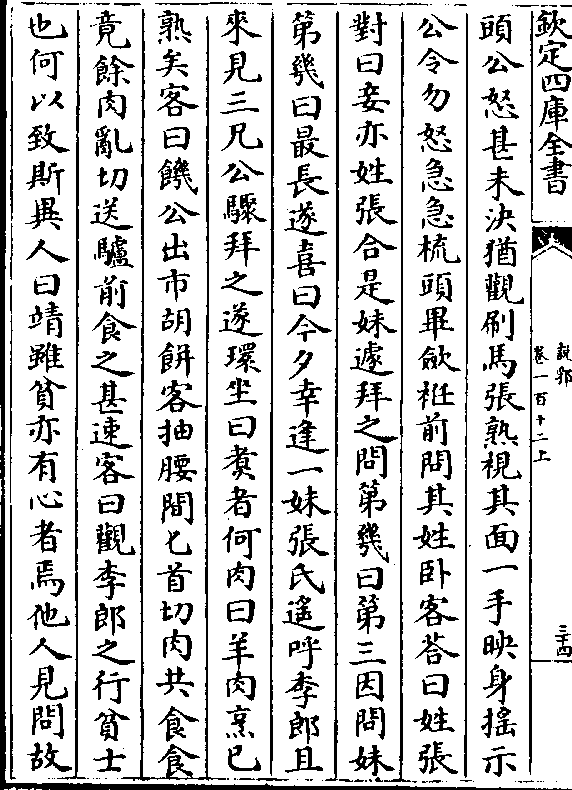 欽定四庫全書
說郛
卷一百十二上
三十四
頭公怒甚未決猶觀刷馬張熟視其面一手映身搖示
公令勿怒急急梳頭畢歛袵前問其姓卧客荅曰姓張
對曰妾亦姓張合是妹遽拜之問第幾曰第三因問妹
第幾曰最長遂喜曰今夕幸逢一妹張氏遙呼李郎且
來見三兄公驟拜之遂環坐曰煑者何肉曰羊肉烹已
熟矣客曰饑公出市胡餅客抽腰間匕首切肉共食食
竟餘肉亂切送驢前食之甚速客曰觀李郎之行貧士
也何以致斯異人曰靖雖貧亦有心者焉他人見問故